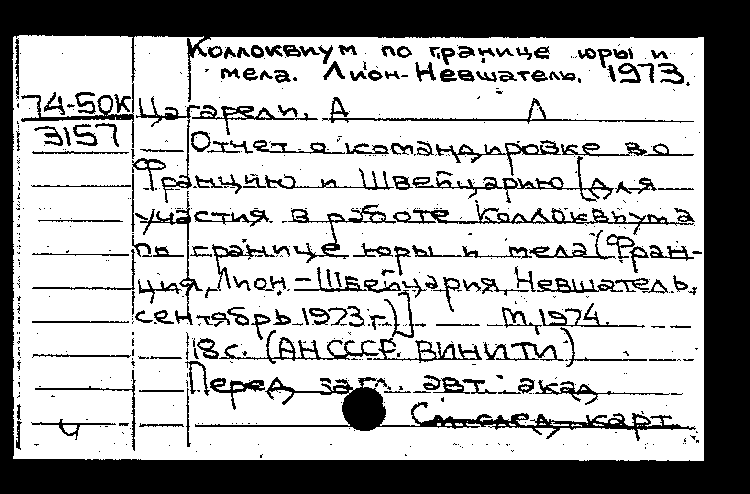 Коллоквиум по границе юры и
мела. Лион-Невшатель. 1973.
74-50К Цагарели, А Л
3157 Отчет о командировке во
Францию и Швейцарию [для
участия в работе Коллоквиума
по границе юры и мела (Фран-
ция, Лион - Швейцария, Невшатель,
сентябрь 1973 г.)] М., 1974.
18 с. (АН СССР. ВИНИТИ)
Перед загл. авт.: акад.
См. след. карт.
ч